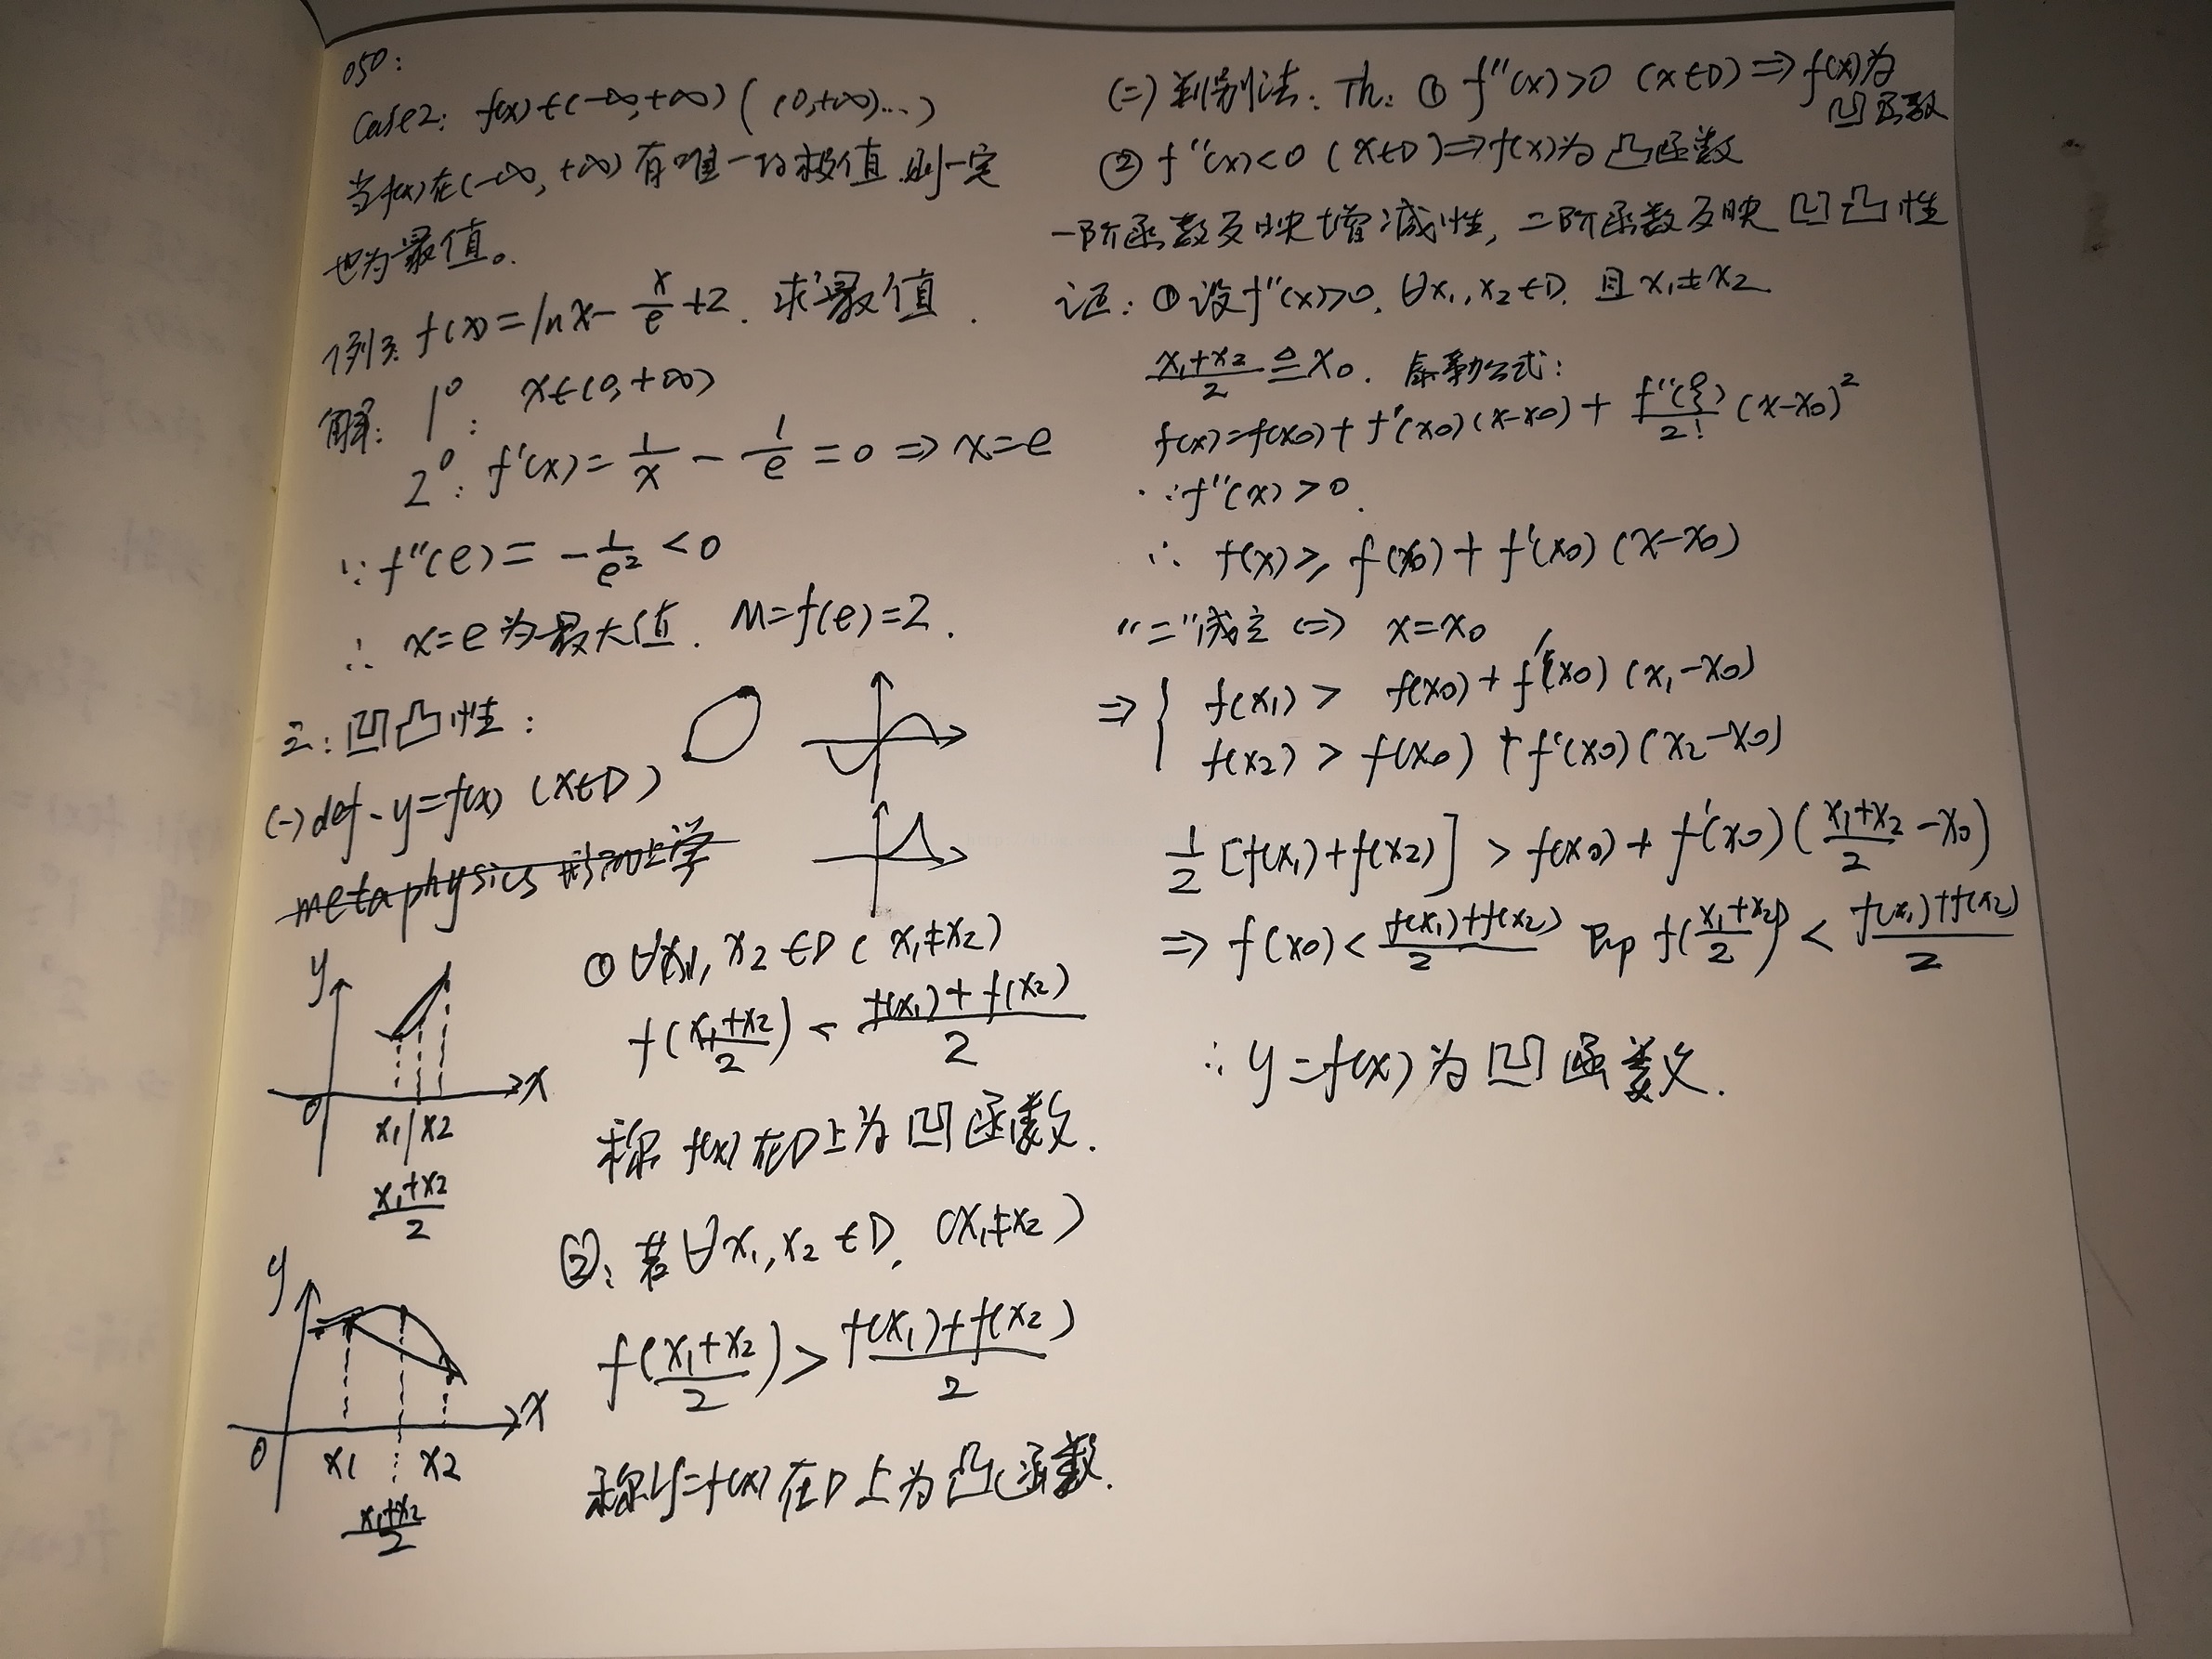 050:
Case2: f(x)∈(-∞,+∞) ( (0,+∞)...)
当f(x)在(-∞,+∞)有唯一的极值,则一定
也为最值。
例3: f(x)=lnx-x/e+2. 求最值.
解: 1⁰: x∈(0,+∞)
2⁰: f'(x)=1/x-1/e=0⇒x=e
∵f''(e)=-1/e²<0
∴x=e为最大值. M=f(e)=2.
三:凹凸性:
(一)def-y=f(x) (x∈D)
metaphysics 形而上学
①∀x1,x2∈D(x1≠x2)
f((x1+x2)/2)<(f(x1)+f(x2))/2
称f(x)在D上为凹函数.
y
x
0
x1 x2
(x1+x2)/2
②:若∀x1,x2∈D,(x1≠x2)
f((x1+x2)/2)>(f(x1)+f(x2))/2
称y=f(x)在D上为凸函数.
y
x
0
x1 x2
(x1+x2)/2
(二)判别法:Th:①f''(x)>0 (x∈D)⇒f(x)为
凹函数
②f''(x)<0 (x∈D)⇒f(x)为凸函数
一阶函数反映增减性,二阶函数反映凹凸性
证:①设f''(x)>0,∀x1,x2∈D,且x1≠x2
(x1+x2)/2≜x0. 泰勒公式:
f(x)=f(x0)+f'(x0)(x-x0)+f''(ξ)/2!(x-x0)²
∵f''(x)>0.
∴f(x)≥f(x0)+f'(x0)(x-x0)
"="成立⇔x=x0
⇒{f(x1)>f(x0)+f'(x0)(x1-x0)
f(x2)>f(x0)+f'(x0)(x2-x0)
1/2[f(x1)+f(x2)]>f(x0)+f'(x0)((x1+x2)/2-x0)
⇒f(x0)<(f(x1)+f(x2))/2 即f((x1+x2)/2)<(f(x1)+f(x2))/2
∴y=f(x)为凹函数.